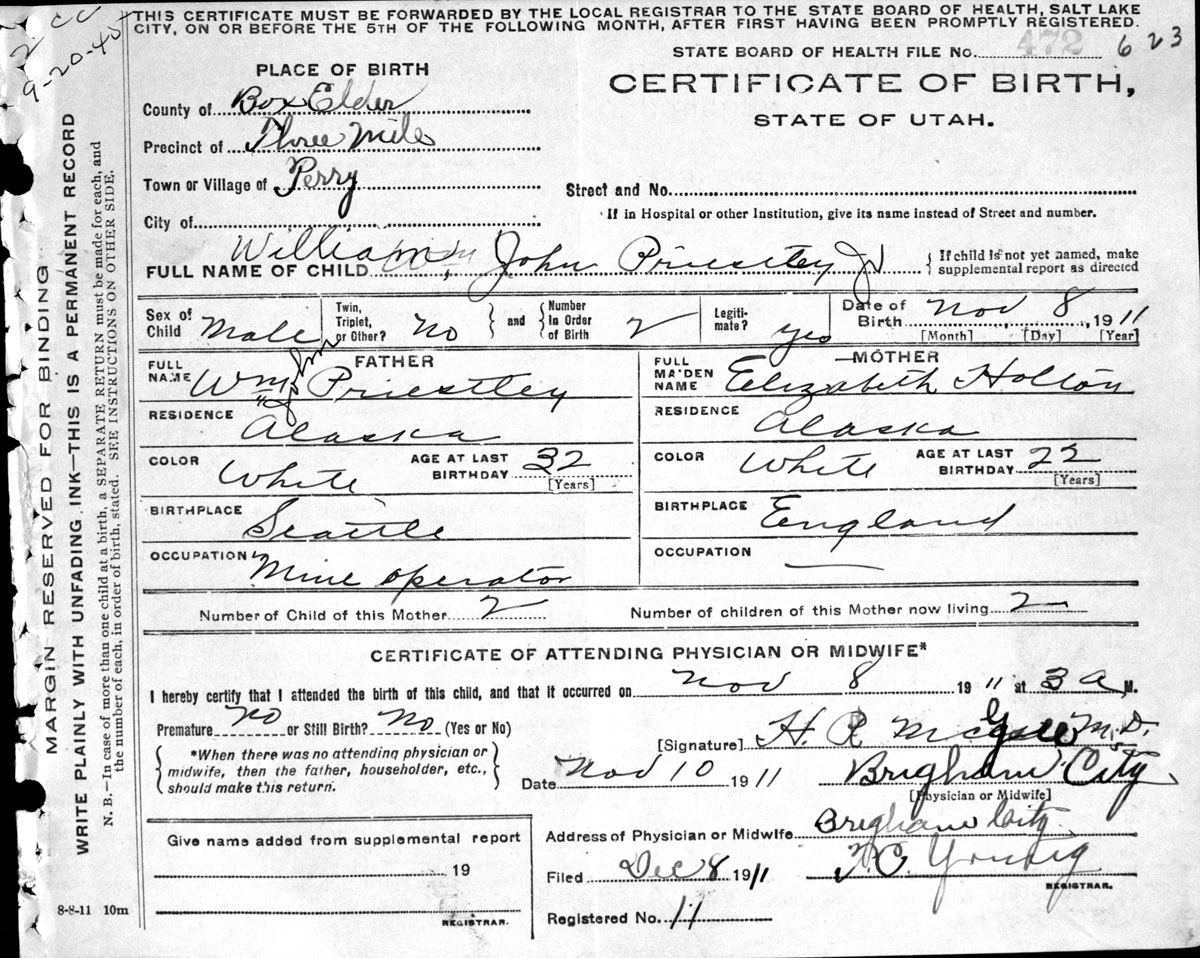 2 CC
9-20-40
THIS CERTIFICATE MUST BE FORWARDED BY THE LOCAL REGISTRAR TO THE STATE BOARD OF HEALTH, SALT LAKE
CITY, ON OR BEFORE THE 5TH OF THE FOLLOWING MONTH, AFTER FIRST HAVING BEEN PROMPTLY REGISTERED.
STATE BOARD OF HEALTH FILE No. 472 623
PLACE OF BIRTH
CERTIFICATE OF BIRTH,
STATE OF UTAH.
County of Box Elder
Precinct of Three Mile
Town or Village of Perry
Street and No.
City of
If in Hospital or other Institution, give its name instead of Street and number.
FULL NAME OF CHILD William John Priestley Jr
{ If child is not yet named, make
supplemental report as directed
Sex of Child Male
Twin, Triplet, or Other? No
and
Number in Order of Birth 2
Legiti-mate? yes
Date of Birth Nov 8, 1911
[Month] [Day] [Year]
FATHER
FULL NAME Wm John Priestley
RESIDENCE Alaska
COLOR White AGE AT LAST BIRTHDAY 32
[Years]
BIRTHPLACE Seattle
OCCUPATION Mine operator
MOTHER
FULL MAIDEN NAME Elizabeth Holton
RESIDENCE Alaska
COLOR White AGE AT LAST BIRTHDAY 22
[Years]
BIRTHPLACE England
OCCUPATION —
Number of Child of this Mother 2 Number of children of this Mother now living 2
CERTIFICATE OF ATTENDING PHYSICIAN OR MIDWIFE*
I hereby certify that I attended the birth of this child, and that it occurred on Nov 8 1911 at 3 a M.
Premature No or Still Birth? No (Yes or No)
*When there was no attending physician or
midwife, then the father, householder, etc.,
should make this return.
[Signature] H. R. McGee M.D.
Date Nov 10 1911 Brigham City
[Physician or Midwife]
Give name added from supplemental report
19
REGISTRAR.
Address of Physician or Midwife Brigham City
Filed Dec 8 1911 Young
REGISTRAR.
Registered No. 11
8-8-11 10m
MARGIN RESERVED FOR BINDING
WRITE PLAINLY WITH UNFADING INK—THIS IS A PERMANENT RECORD
N. B.—In case of more than one child at a birth, a SEPARATE RETURN must be made for each, and
the number of each, in order of birth, stated. SEE INSTRUCTIONS ON OTHER SIDE.